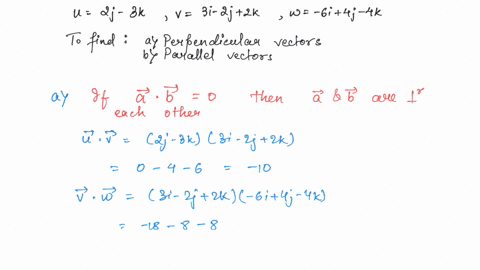 u = 2j - 3k , v = 3i - 2j + 2k , w = -6i + 4j - 4k
To find : a) Perpendicular vectors
b) Parallel vectors
a) If a⃗ · b⃗ = 0 then a⃗ & b⃗ are ⊥ʳ
each other
u⃗ · v⃗ = (2j - 3k) (3i - 2j + 2k)
= 0 - 4 - 6 = -10
v⃗ · w⃗ = (3i - 2j + 2k) (-6i + 4j - 4k)
= -18 - 8 - 8